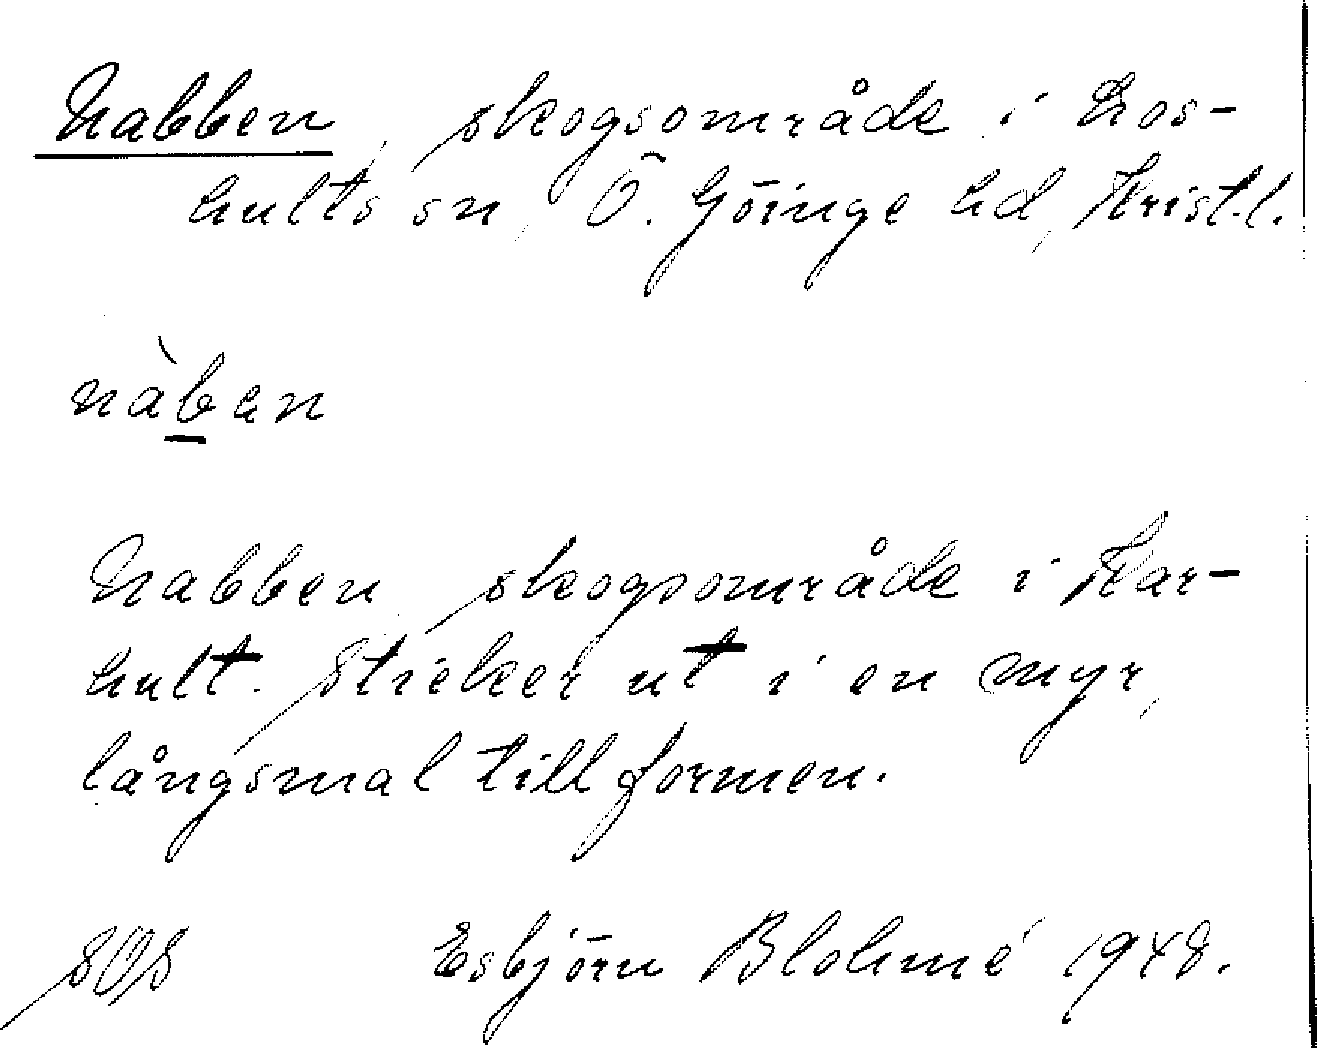 Nabben, skogsområde i Los-
hults sn, Ö. Göinge hd, Krist.l.
nàben
Nabben, skogsområde i Kar-
hult. Sticker ut i en myr,
långsmal till formen.
Esbjörn Blohmé 1948.